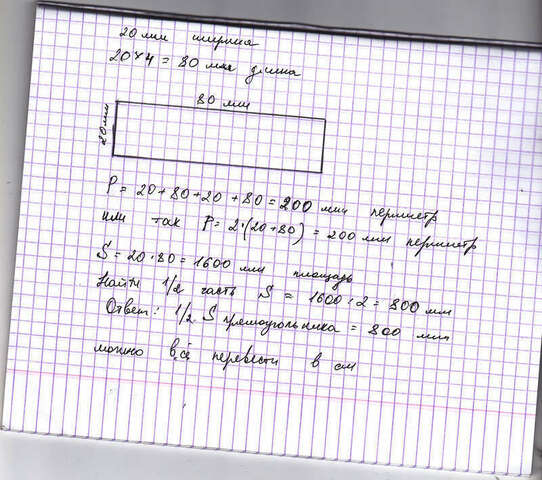 20 мм ширина
20×4 = 80 мм длина
80 мм
20 мм
P = 20+80+20+80=200 мм периметр
или так P= 2·(20+80) = 200 мм периметр
S= 20·80= 1600 мм площадь
Найти 1/2 часть S = 1600:2= 800 мм
Ответ: 1/2 S прямоугольника = 800 мм
можно всё перевести в см